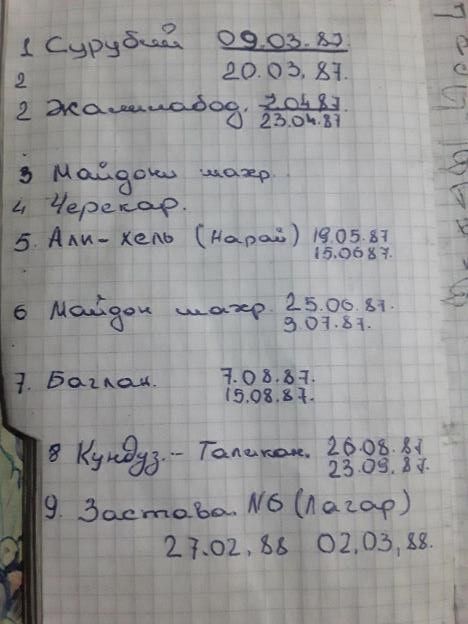 1 Сурубий 09.03.87.
2 20.03.87.
2 Жалилабод. 7.04.87.
23.04.87
3 Майдони шахр.
4 Черекар.
5. Али-хель (Нарай) 19.05.87
15.06.87.
6 Майдон шахр. 25.06.87.
9.07.87.
7. Баглан. 7.08.87.
19.08.87.
8 Кундуз.- Таликан. 26.08.87
23.09.87.
9. Застава. N6 (Лагар)
27.02.88 02,03,88.